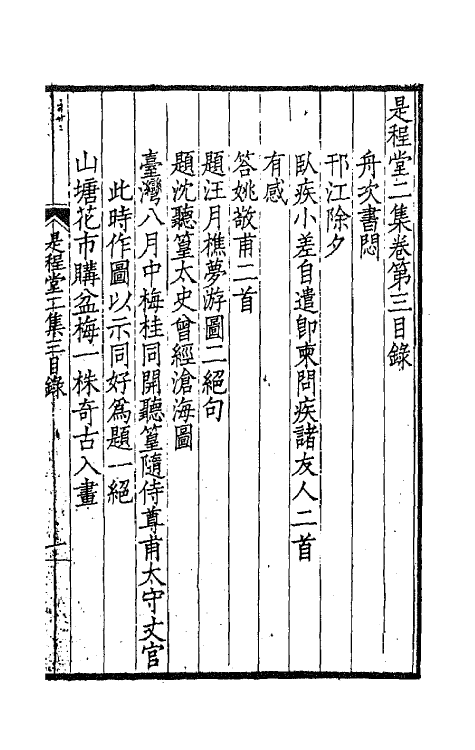 是程堂二集卷第三目錄
舟次書悶
邗江除夕
臥疾小差自遣卽柬問疾諸友人二首
有感
答姚敬甫二首
題汪月樵夢游圖二絕句
題沈聽篁太史曾經滄海圖
臺灣八月中梅桂同開聽篁隨侍尊甫太守丈官
此時作圖以示同好爲題一絕
山塘花市購盆梅一株奇古入畫
是程堂二集三目錄